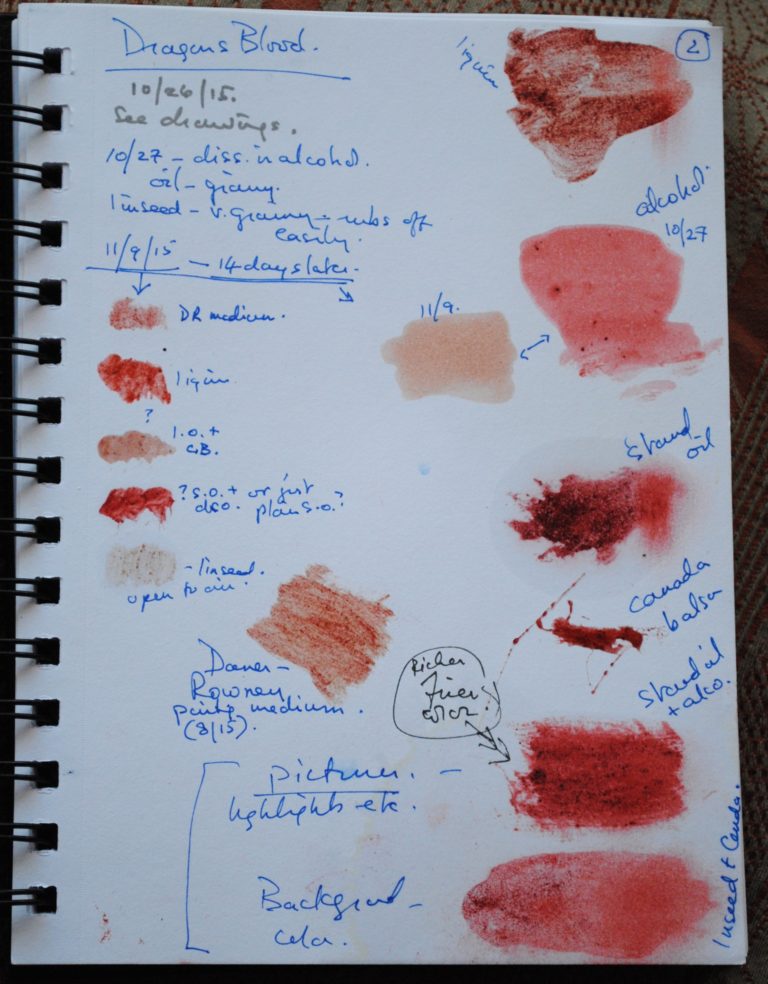 Dragons Blood.
2
10/26/15.
See drawings.
10/27 – diss. in alcohol.
oil – grainy.
linseed – v. grainy – rubs off
easily.
11/9/15 – 14 days later.
DR medium.
liquin
?
l.o. +
C.B.
? s.o. + or just
plain s.o.?
– linseed.
open to air.
Daner–
Rowney
medium.
(8/15).
picture. –
highlights etc.
Backgrond –
color.
liquin
alcohol.
10/27
11/9.
Stand
oil
Canada
balsa
Richer
finer
color
Stand oil
+ alco.
linseed + Canda.